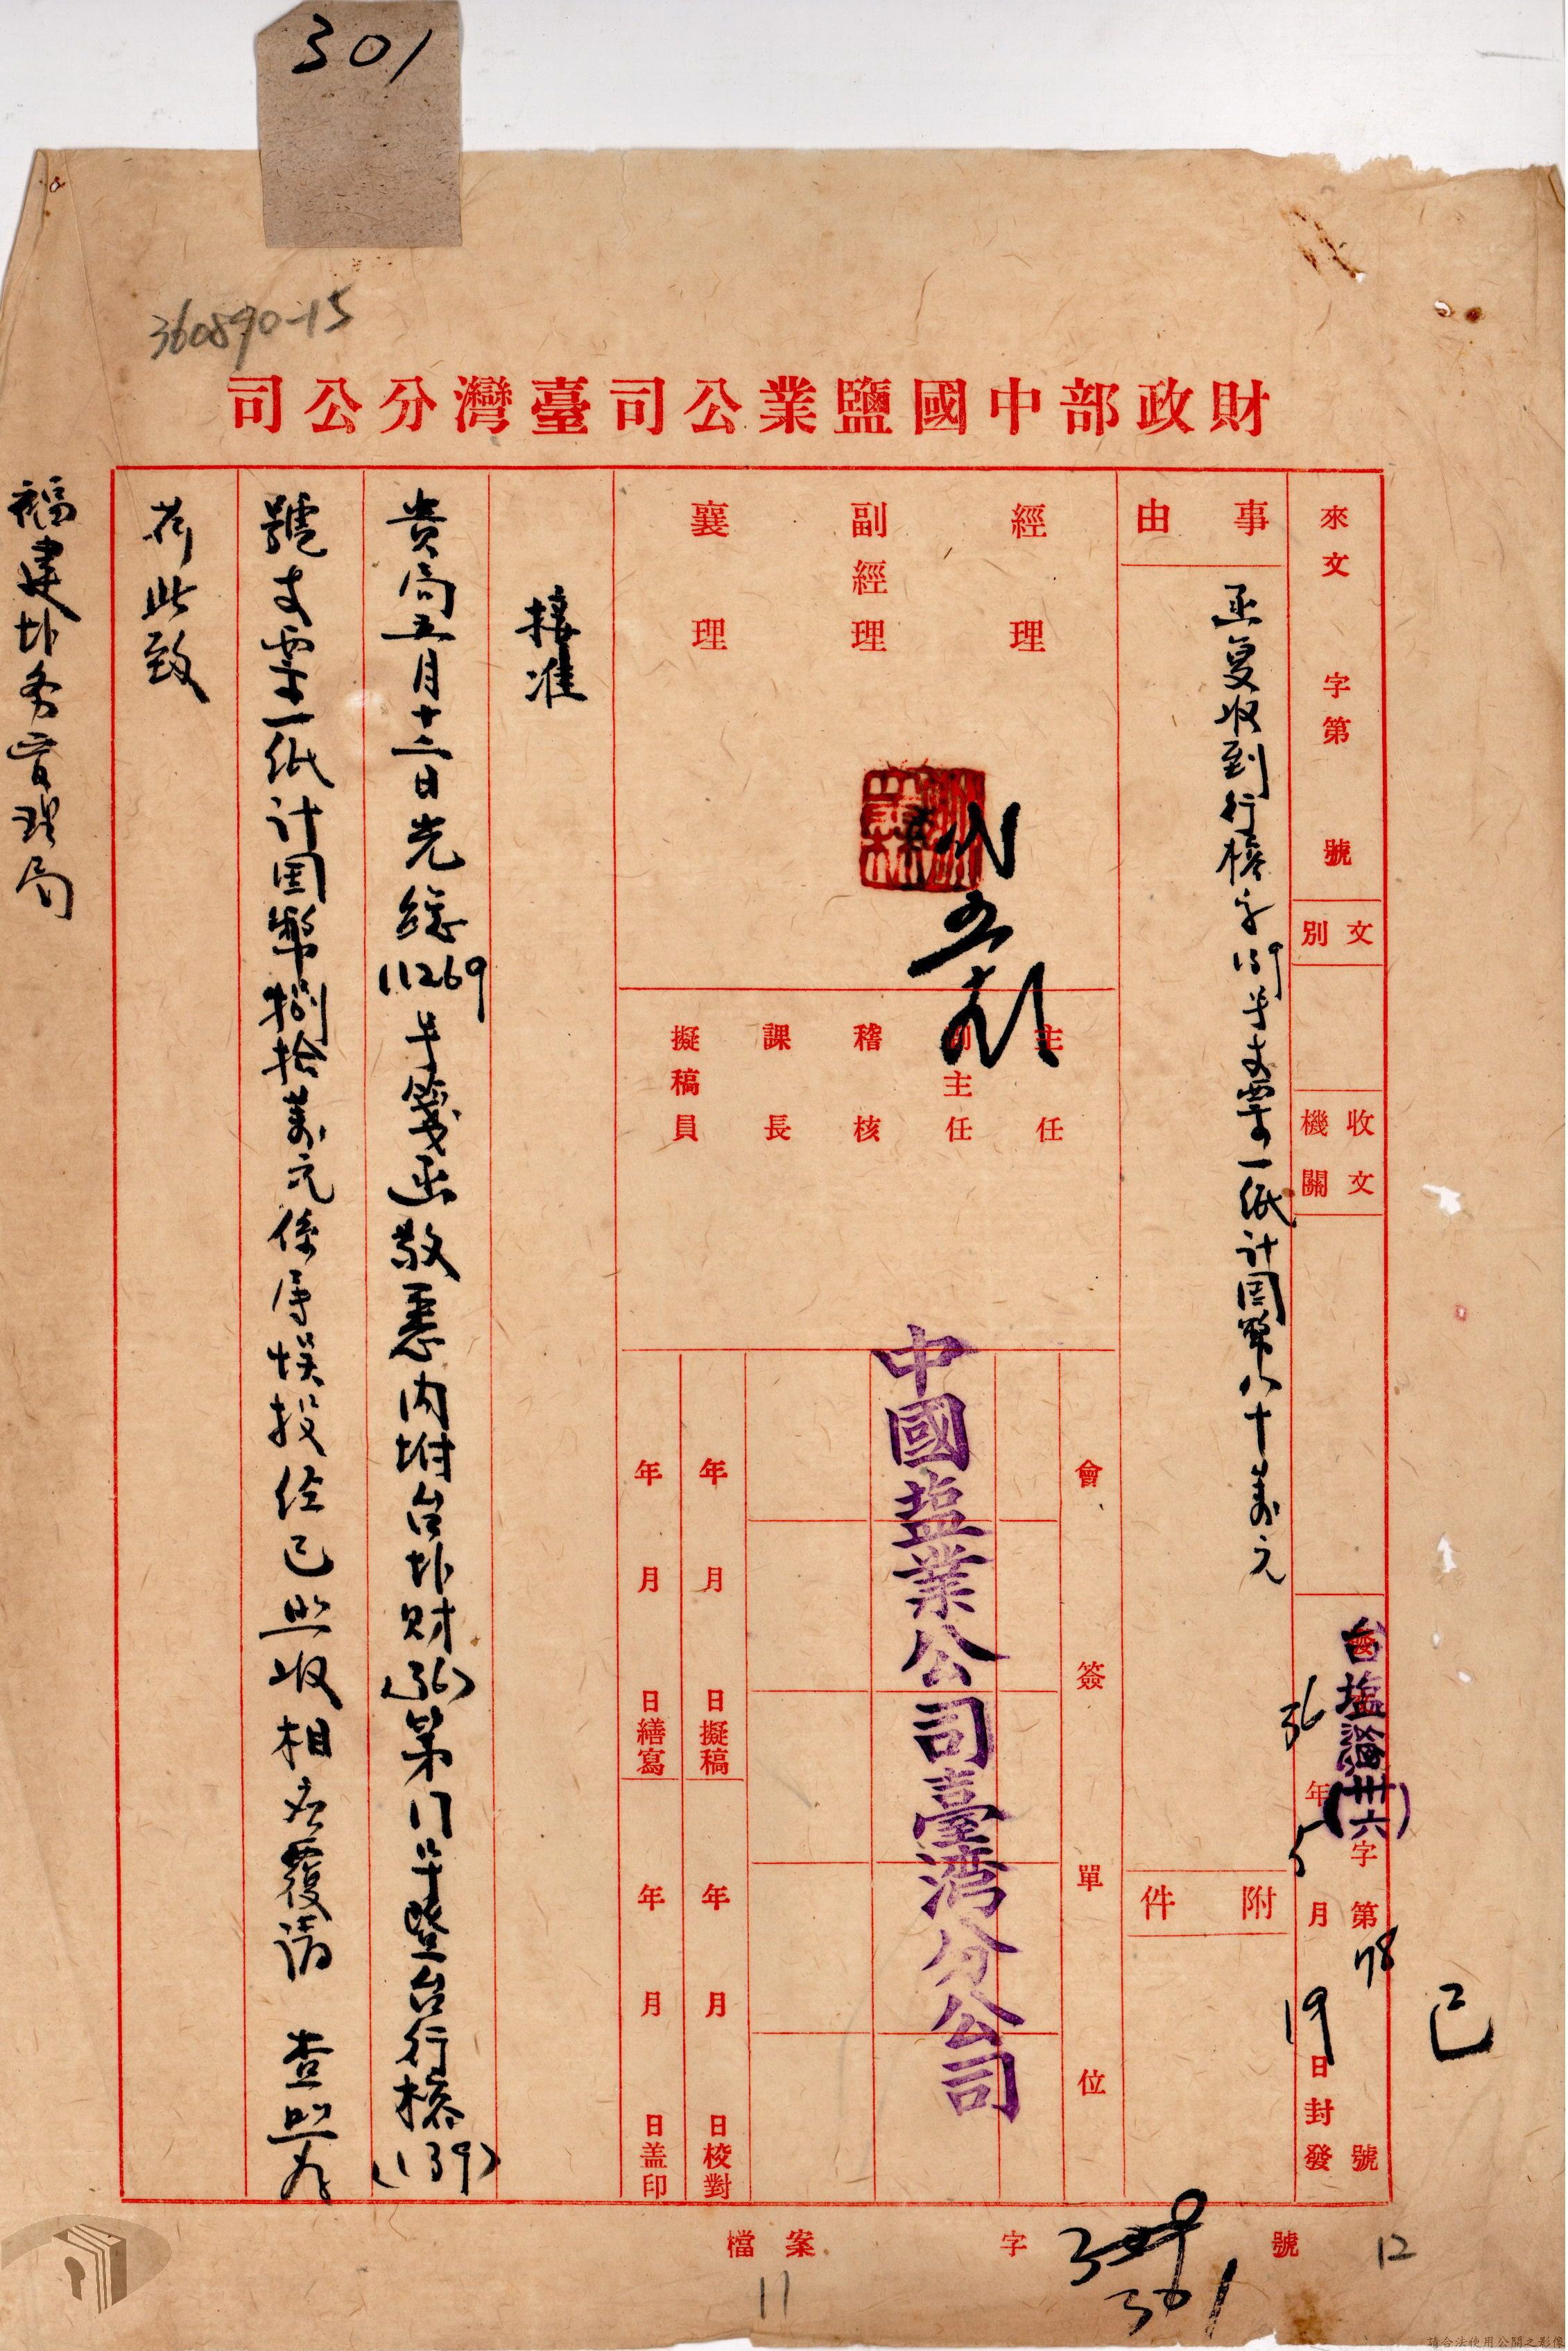 301
360890-15
財政部中國鹽業公司臺灣分公司
來文 字第 號
文別
收文機關
台塩論(卅六)字第78號
36年5月19日封發
已
事由
函复收到行榕字139号支票一紙計国幣八十萬元
附件
經理
副經理
襄理
主任
副主任
稽核
課長
擬稿員
會簽單位
中國塩業公司臺灣分公司
年 月 日擬稿
年 月 日校對
年 月 日繕寫
年 月 日盖印
接准
貴局五月十二日光總11269号箋函敬悉内坿台卟財(36)第 号暨台行榕(139)
號支票一紙計国幣捌拾萬元係 悞投經已照收相应覆請 查照为
荷此致
福建卟务管理局
檔案 字 號
301
11
12
請合法使用公開之影像